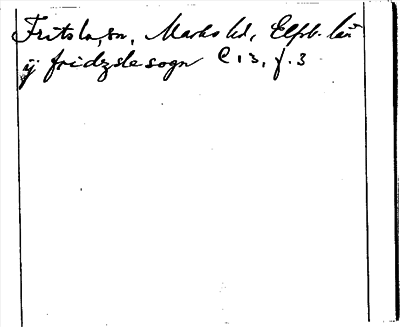 Fritsla, sn, Marks hd, Elfsb. län
ij fridzslesogn C 13, f. 3